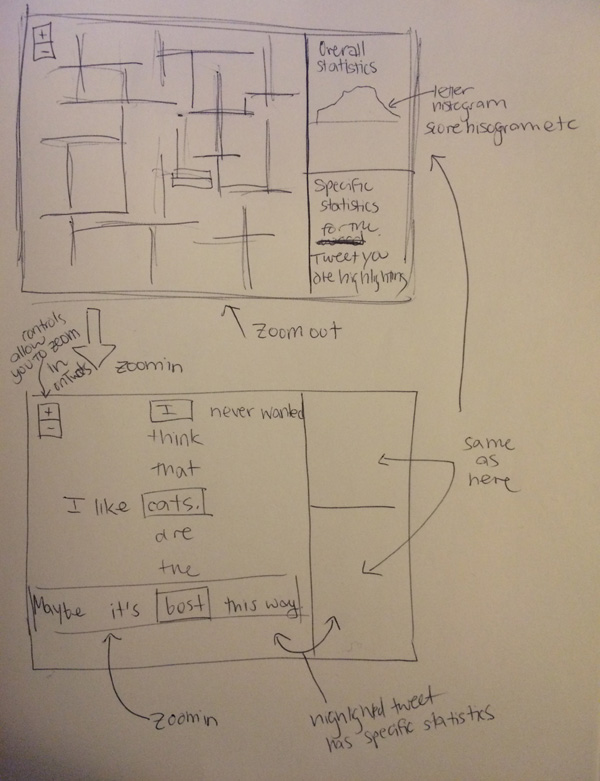 +
-
Overall
statistics
letter
histogram
score hisogram etc
Specific
statistics
for the
Tweet you
are highlighting
zoom out
controls
allow
you to zoom
in
on Tweets
zoom in
+
-
I never wanted
think
that
I like cats.
are
the
Maybe it's best this way.
same
as
here
zoom in
highlighted tweet
has specific statistics